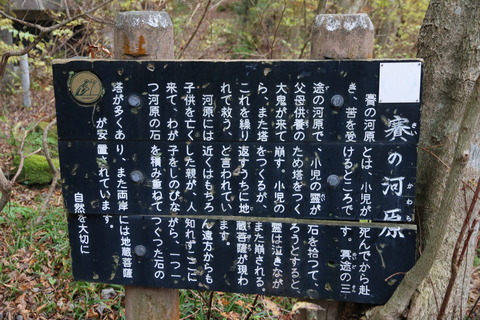 賽の河原
かわら
賽の河原とは、小児が死んでから赴
き、苦を受けるところです。冥途の三
途の河原で、小児の霊が石を拾って
父母供養のため塔をつくろうとすると
大鬼が来て崩す。小児の霊は泣きなが
ら、また塔をつくるが、また崩される。
これを繰り返すうちに地蔵菩薩が現わ
れて救う、と言われています。
河原には近くはもちろん遠方からも
子供を亡くした親が、人知れずここに
来て、わが子をしのびながら、一つ一
つ河原の石を積み重ねてつくった石の
塔が多くあり、また両岸には地蔵菩薩
が安置されています。
自然を大切に